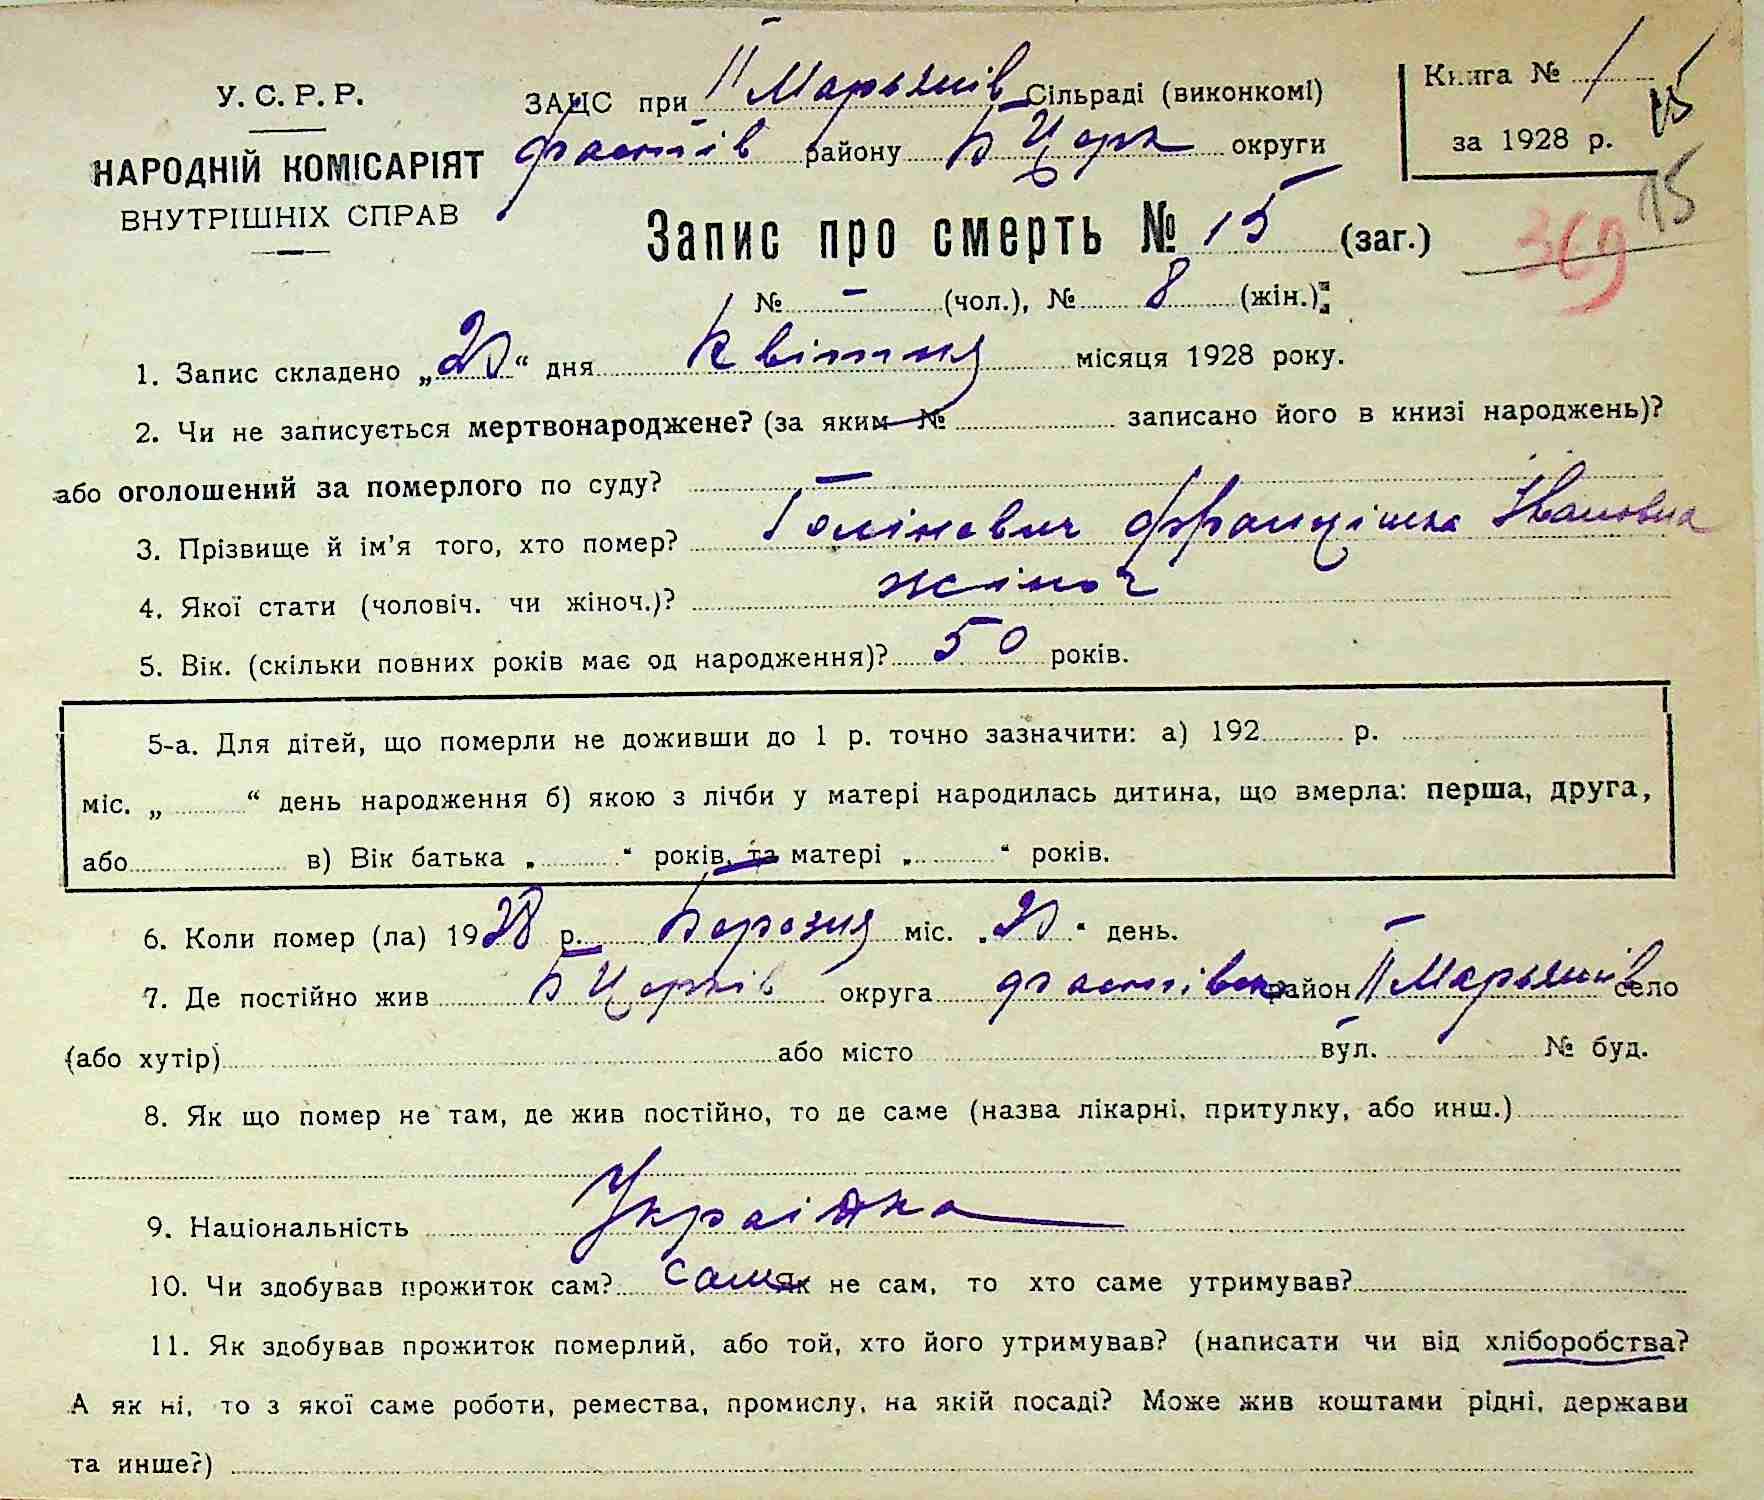 У. С. Р. Р.
НАРОДНІЙ КОМІСАРІЯТ
ВНУТРІШНІХ СПРАВ
ЗАЦС при II Марьянів Сільраді (виконкомі)
Фастів району Б Церк округи
Книга № 1
за 1928 р.
15
15
369
Запис про смерть № 15 (заг.)
№ – (чол.), № 8 (жін.)
1. Запис складено „20“ дня Квітня місяця 1928 року.
2. Чи не записується мертвонароджене? (за яким № записано його в книзі народжень)?
або оголошений за померлого по суду? –
3. Прізвище й ім’я того, хто помер? Францішка Івановна
4. Якої стати (чоловіч. чи жіноч.)? жіноч
5. Вік. (скільки повних років має од народження)? 50 років.
5-а. Для дітей, що померли не доживши до 1 р. точно зазначити: а) 192 р.
міс. „ “ день народження б) якою з лічби у матері народилась дитина, що вмерла: перша, друга,
або в) Вік батька „ “ років, та матері „ “ років.
6. Коли помер (ла) 1928 р. Березня міс. „20“ день.
7. Де постійно жив Б Церків округа Фастівськ район II Марьянів село
(або хутір) або місто вул. № буд.
8. Як що помер не там, де жив постійно, то де саме (назва лікарні, притулку, або инш.)
9. Національність Українка
10. Чи здобував прожиток сам? сама Як не сам, то хто саме утримував?
11. Як здобував прожиток померлий, або той, хто його утримував? (написати чи від хліборобства?
А як ні, то з якої саме роботи, ремества, промислу, на якій посаді? Може жив коштами рідні, держави
та инше?)